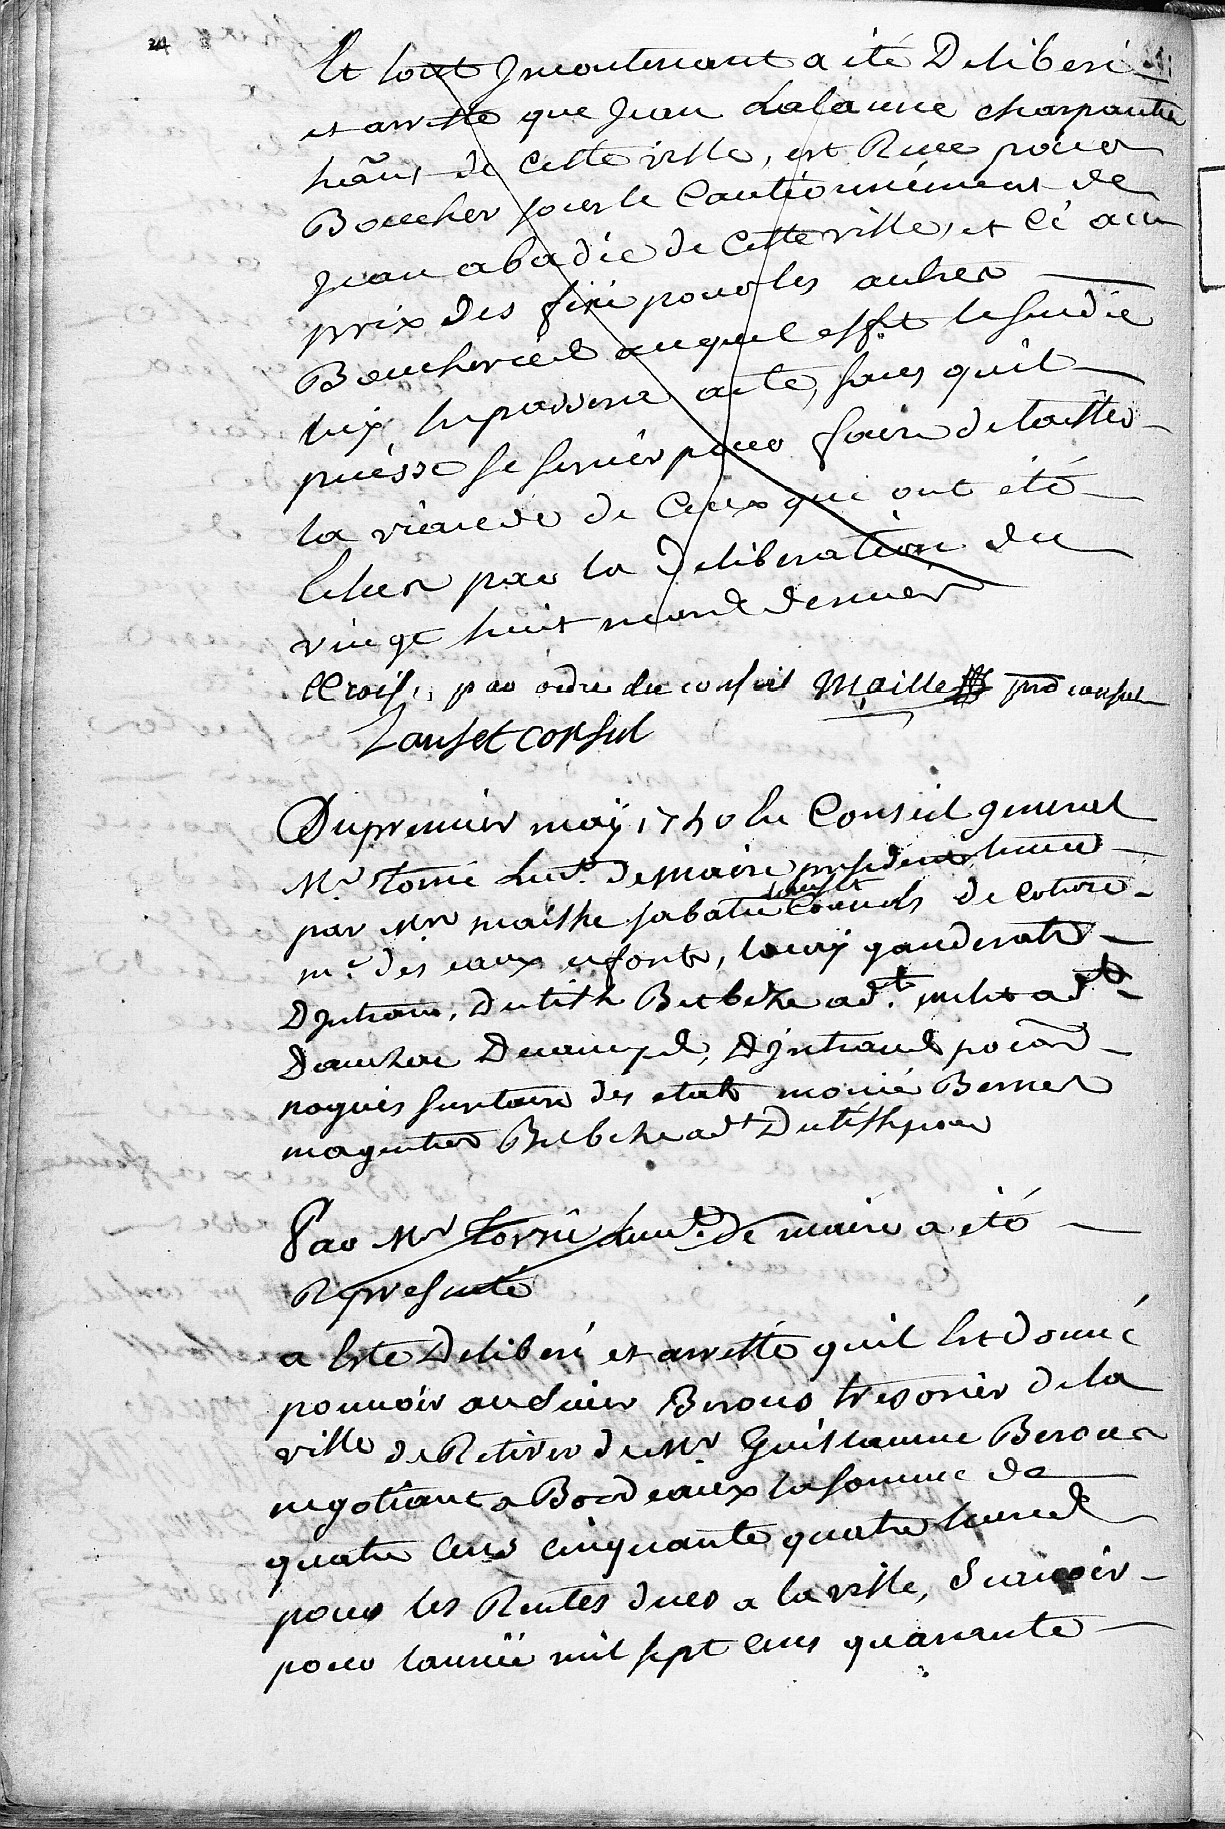 24
Et tout Jncontenant a eté Deliberé
et arresté que Jean Lalanne charpantier
habt de Cette ville, est Receu pour
Boucher sous le Cautionnement de
Jean abadie de Cette ville, et Ce aux
prix des fixé pour les autres
Boucheries auquel effet le sindic
luy en passera acte, sans quil
puisse se servir pour faire detailler
la viande de Ceux qui ont eté
Exclus par la Deliberation du
vingt huit mars dernier
par ordre du conseil Maille pmr consul
Lauset consul
Du premier may 1740 le Conseil general
Mr Torné Lieut. de Maire president tenu
par Mrs maithe sabatie Lauset Consuls de
me des eaux et forts,
Dintrans, Dutilh Betbeze adt.
Dintrans
noguès des etats monié Bernes
Betbeze adt Dutilh
Par Mr Torné Lieut. de maire a eté
Representé
a Esté Deliberé et arresté quil Est donné
pouvoir au sieur Berous tresorier de la
ville de Retirer de Mr Guilhaume Berous
negotiant a Bordeaux la somme de
quatre Cens cinquante quatre livres
pour les Rentes dues a la ville, Scavoir
pour lannée mil sept Cens quarante